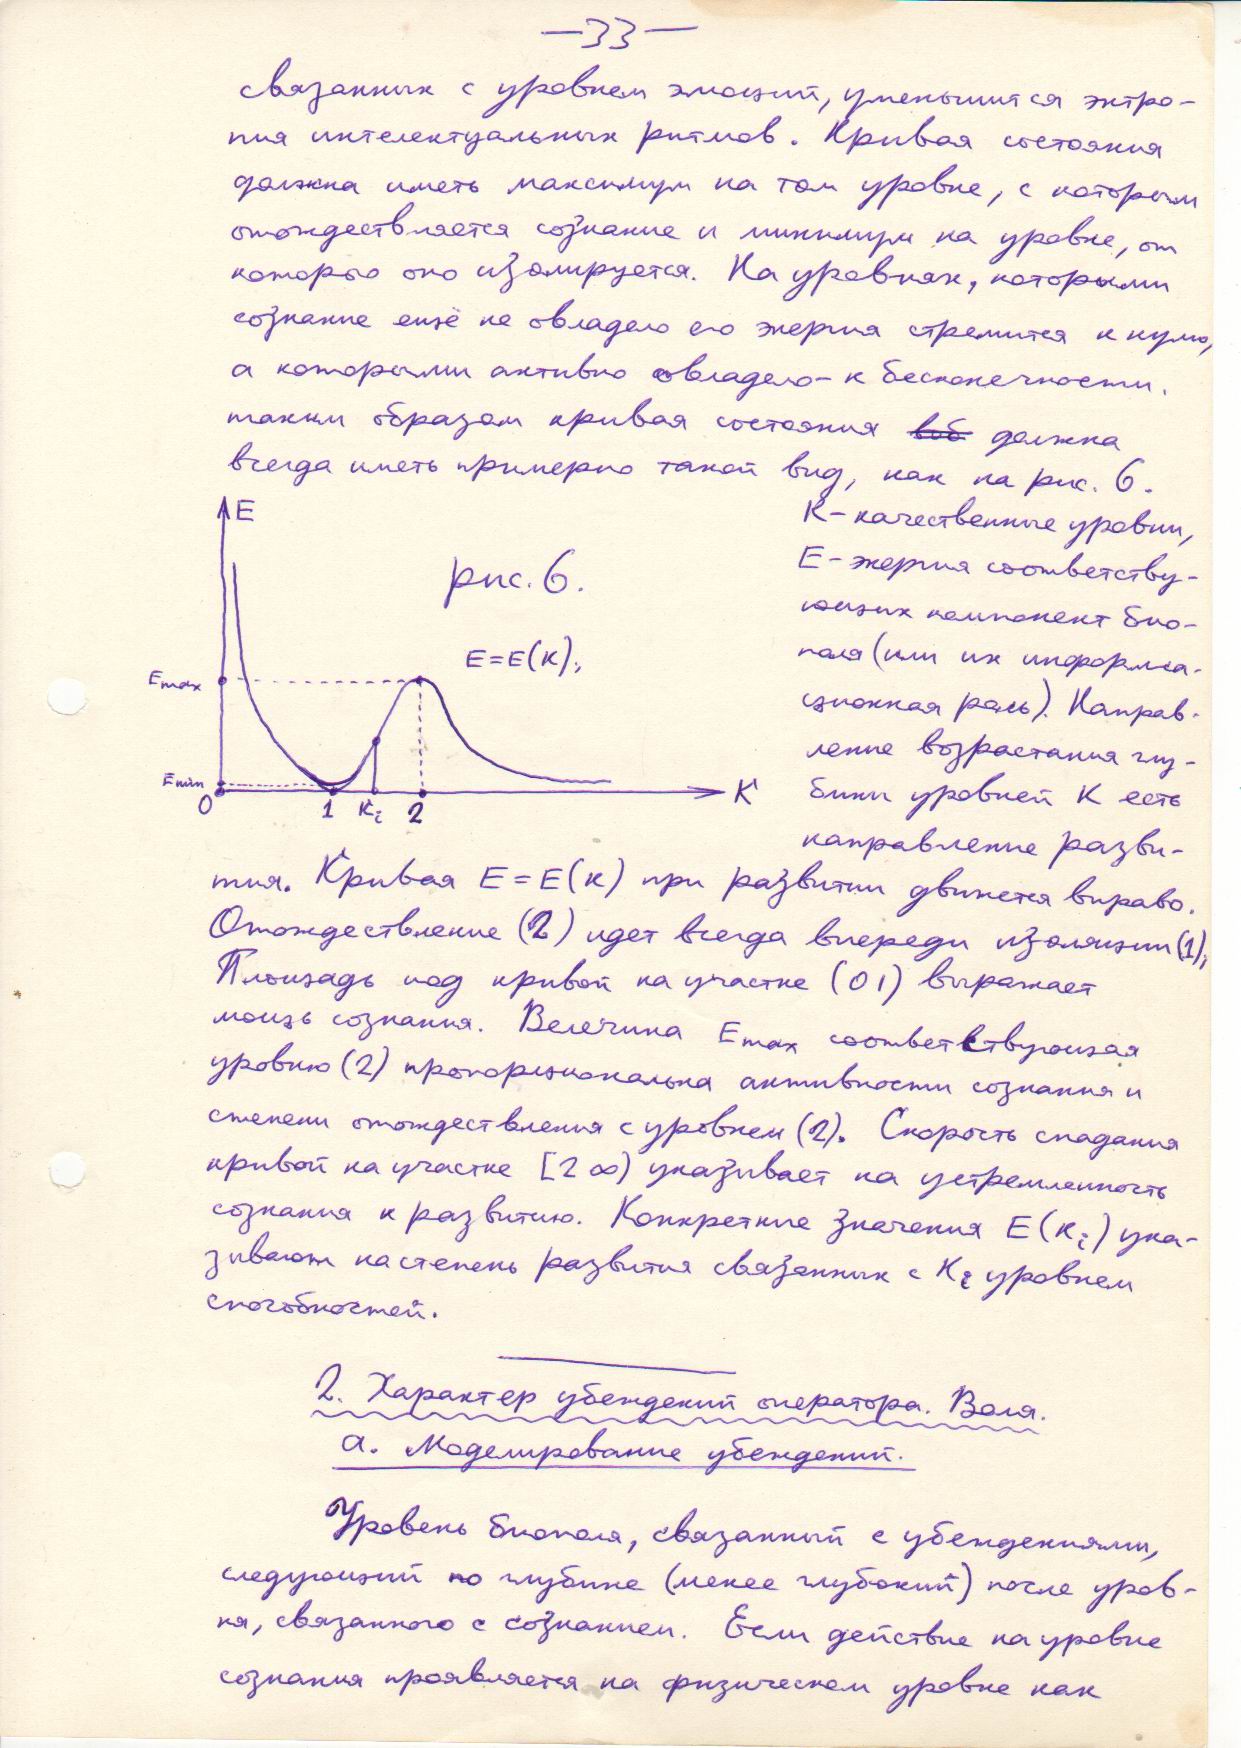 —33—
связанных с уровнем эмоций, уменьшится энтро-
пия интелектуальных ритмов. Кривая состояния
должна иметь максимум на том уровне, с которым
отождествляется сознание и минимум на уровне, от
которого оно изолируется. На уровнях, которыми
сознание ещё не овладело его энергия стремится к нулю,
а которыми активно овладело - к бесконечности.
таким образом кривая состояния должна
всегда иметь примерно такой вид, как на рис. 6.
E
рис. 6.
E=E(K);
Emax
Emin
0
1
Ki
2
K
K - качественные уровни,
E - энергия соответству-
ющих компонент био-
поля (или их информа-
ционная роль). Направ-
ление возрастания глу-
бины уровней K есть
направление разви-
тия. Кривая E=E(K) при развитии движется вправо.
Отождествление (2) идет всегда впереди изоляции (1);
Площадь под кривой на участке (0 1) выражает
мощь сознания. Величина Emax соответствующая
уровню (2) пропорциональна активности сознания и
степени отождествления с уровнем (2). Скорость спадания
кривой на участке [2 ∞) указывает на устремленность
сознания к развитию. Конкретные значения E(Ki) ука-
зывают на степень развития связанных с Ki уровнем
способностей.
2. Характер убеждений оператора. Воля.
а. Моделирование убеждений.
Уровень биополя, связанный с убеждениями,
следующий по глубине (менее глубокий) после уров-
ня, связанного с сознанием. Если действие на уровне
сознания проявляется на физическом уровне как